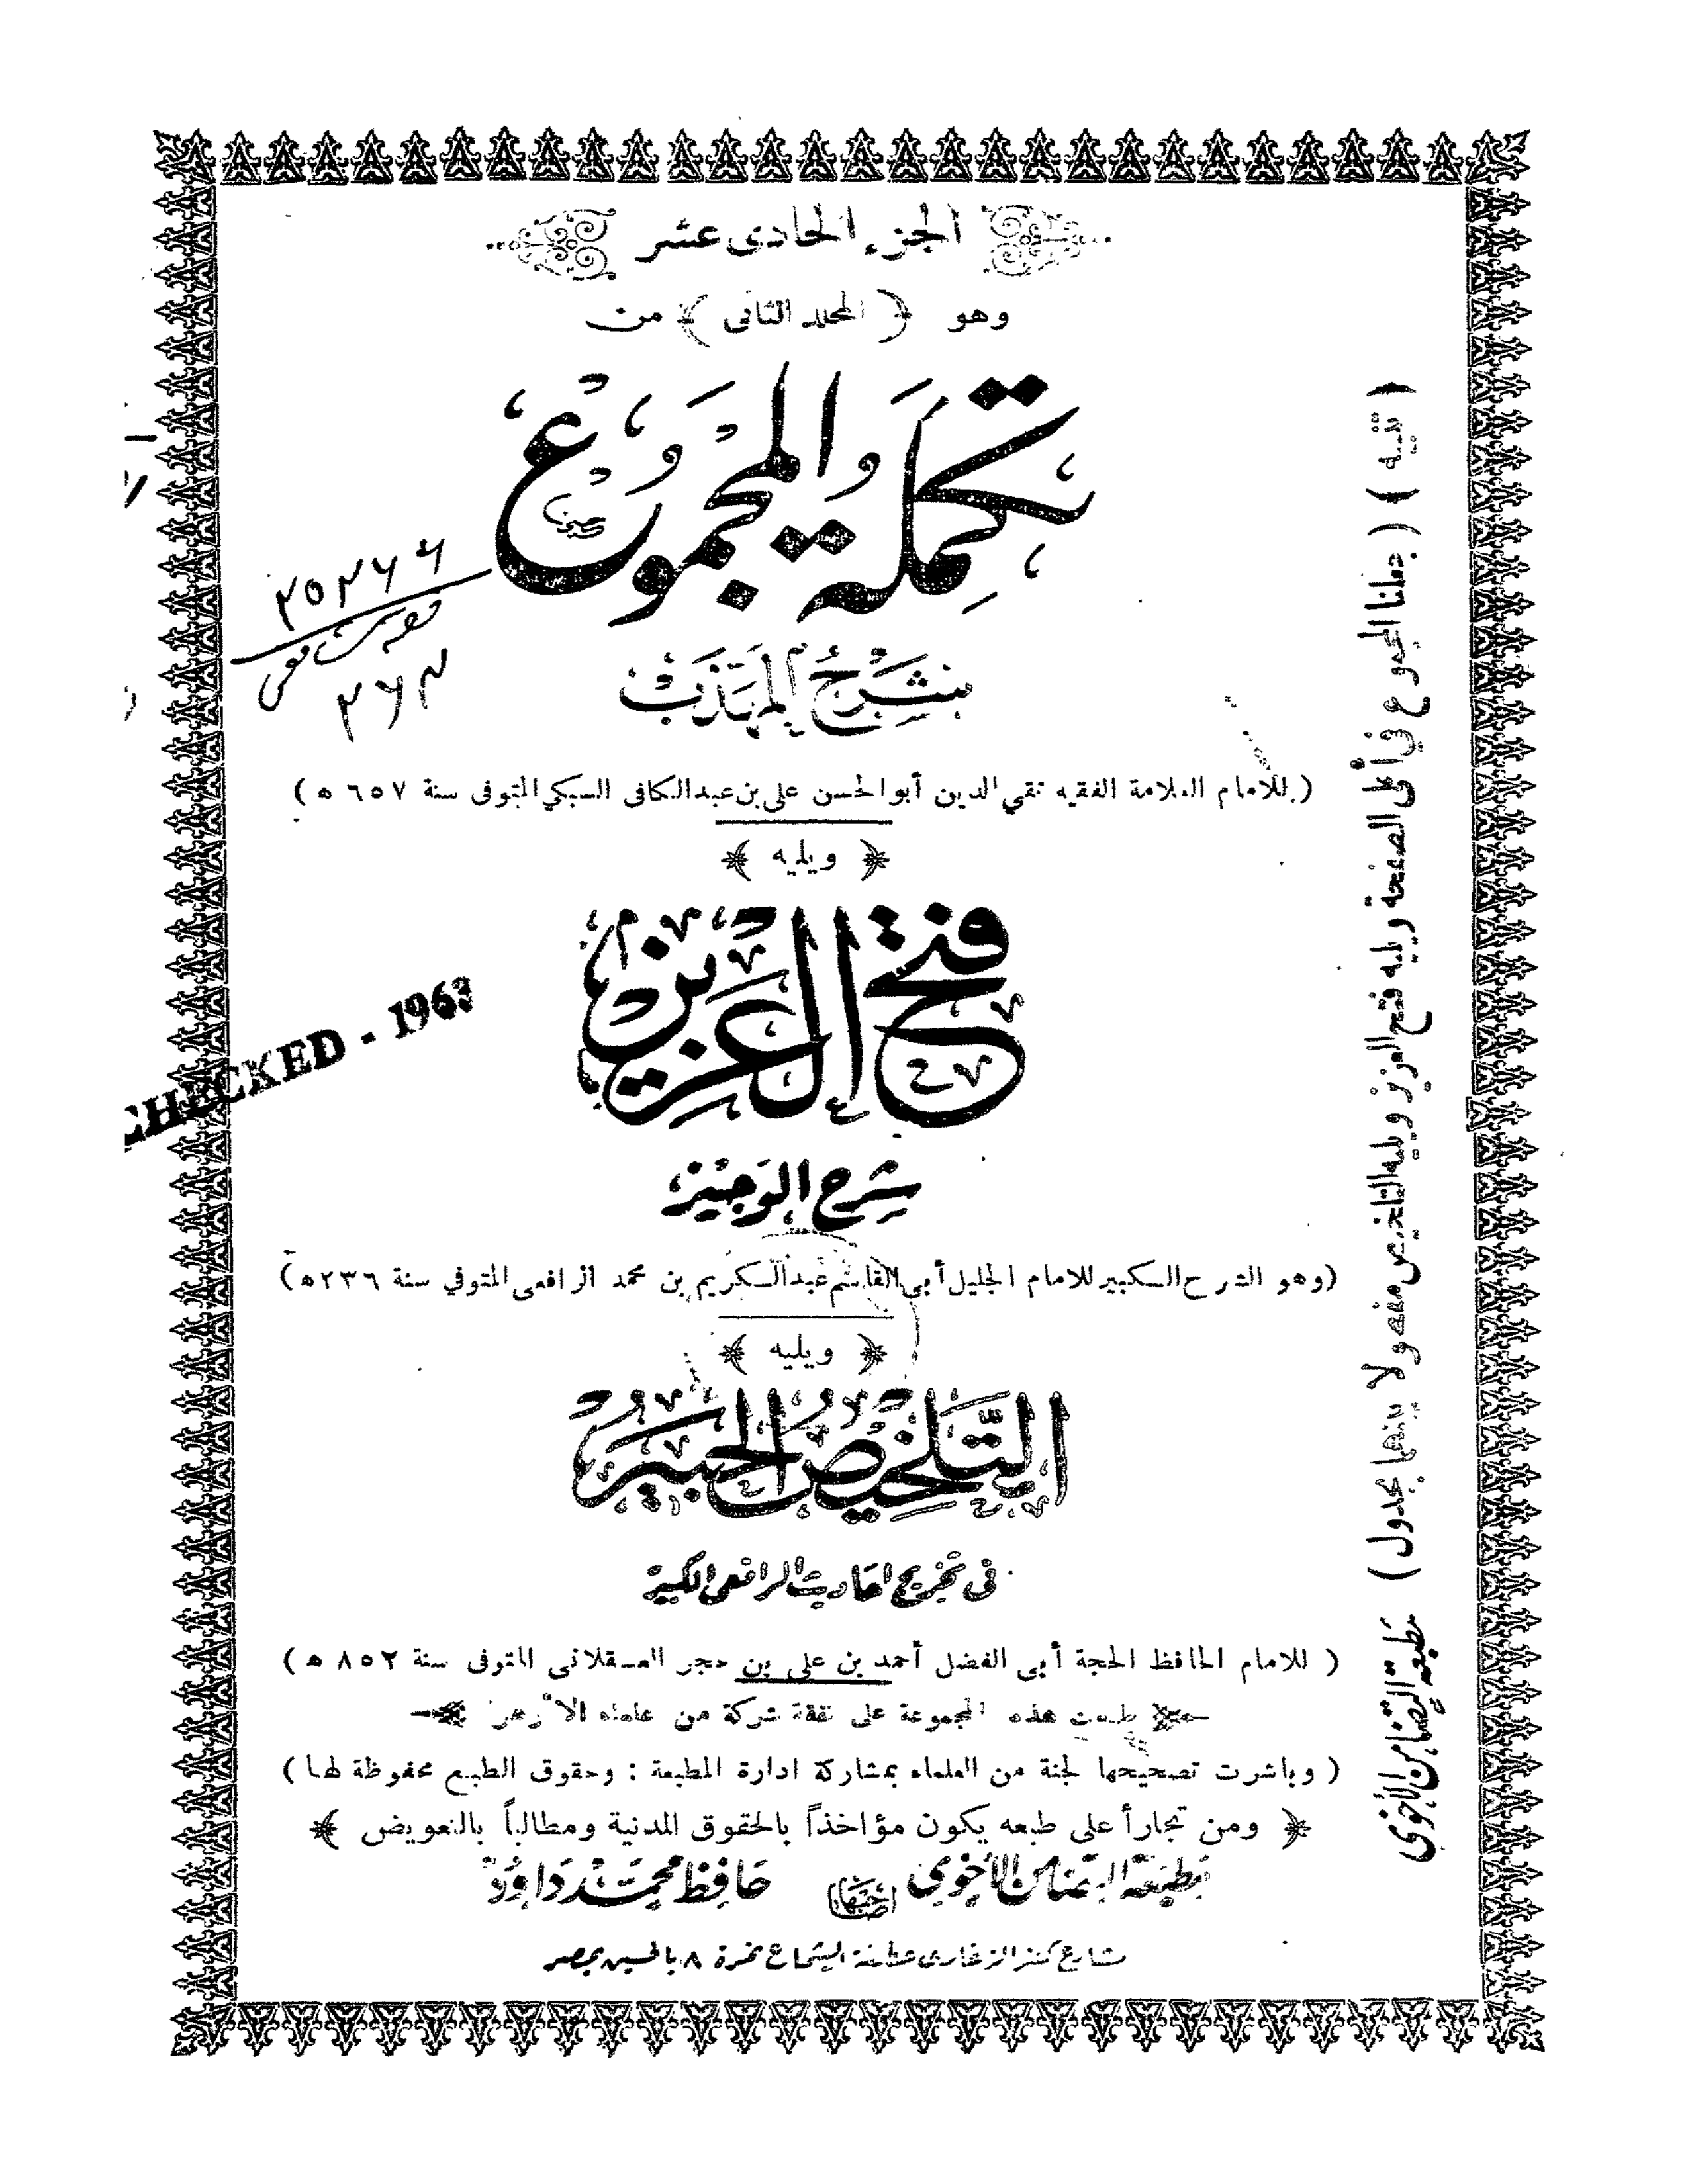 الجزء الحادى عشر
وهو ﴿ المجلد الثانى ﴾ من
تكملة المجموع
شرح المهذب
( للامام العلامة الفقيه تقي الدين أبو الحسن على بن عبد الكافى السبكي المتوفى سنة ٦٥٧ ه )
﴿ ويليه ﴾
فتح العزيز
شرح الوجيز
(وهو الشرح الكبير للامام الجليل أبي القاسم عبد الكريم بن محمد الرافعى المتوفي سنة ٢٣٦ه)
﴿ ويليه ﴾
التلخيص الحبير
فى تخريج احاديث الرافعى الكبير
( للامام الحافظ الحجة أبى الفضل أحمد بن على بن حجر العسقلانى المتوفى سنة ٨٥٢ ه )
طبعت هذه المجموعة على نفقة شركة من علماء الأزهر
( وباشرت تصحيحها لجنة من العلماء بمشاركة ادارة المطبعة : وحقوق الطبع محفوظة لها )
﴿ ومن تجارأ على طبعه يكون مؤاخذاً بالحقوق المدنية ومطالباً بالتعويض ﴾
مطبعة التضامن الأخوى لصاحبها حافظ محمد داود
شارع كنز الزغارى عطفة الشماع نمرة ٨ بالحسين بمصر
( تنبيه ) ( جعلنا المجموع في أعلى الصفحة ويليه فتح العزيز ويليه التلخيص مفصولا بينهما بجدول )
مطبعة التضامن الأخوى
٣٥٢٦٦
٢٦٣
CHECKED - 1963